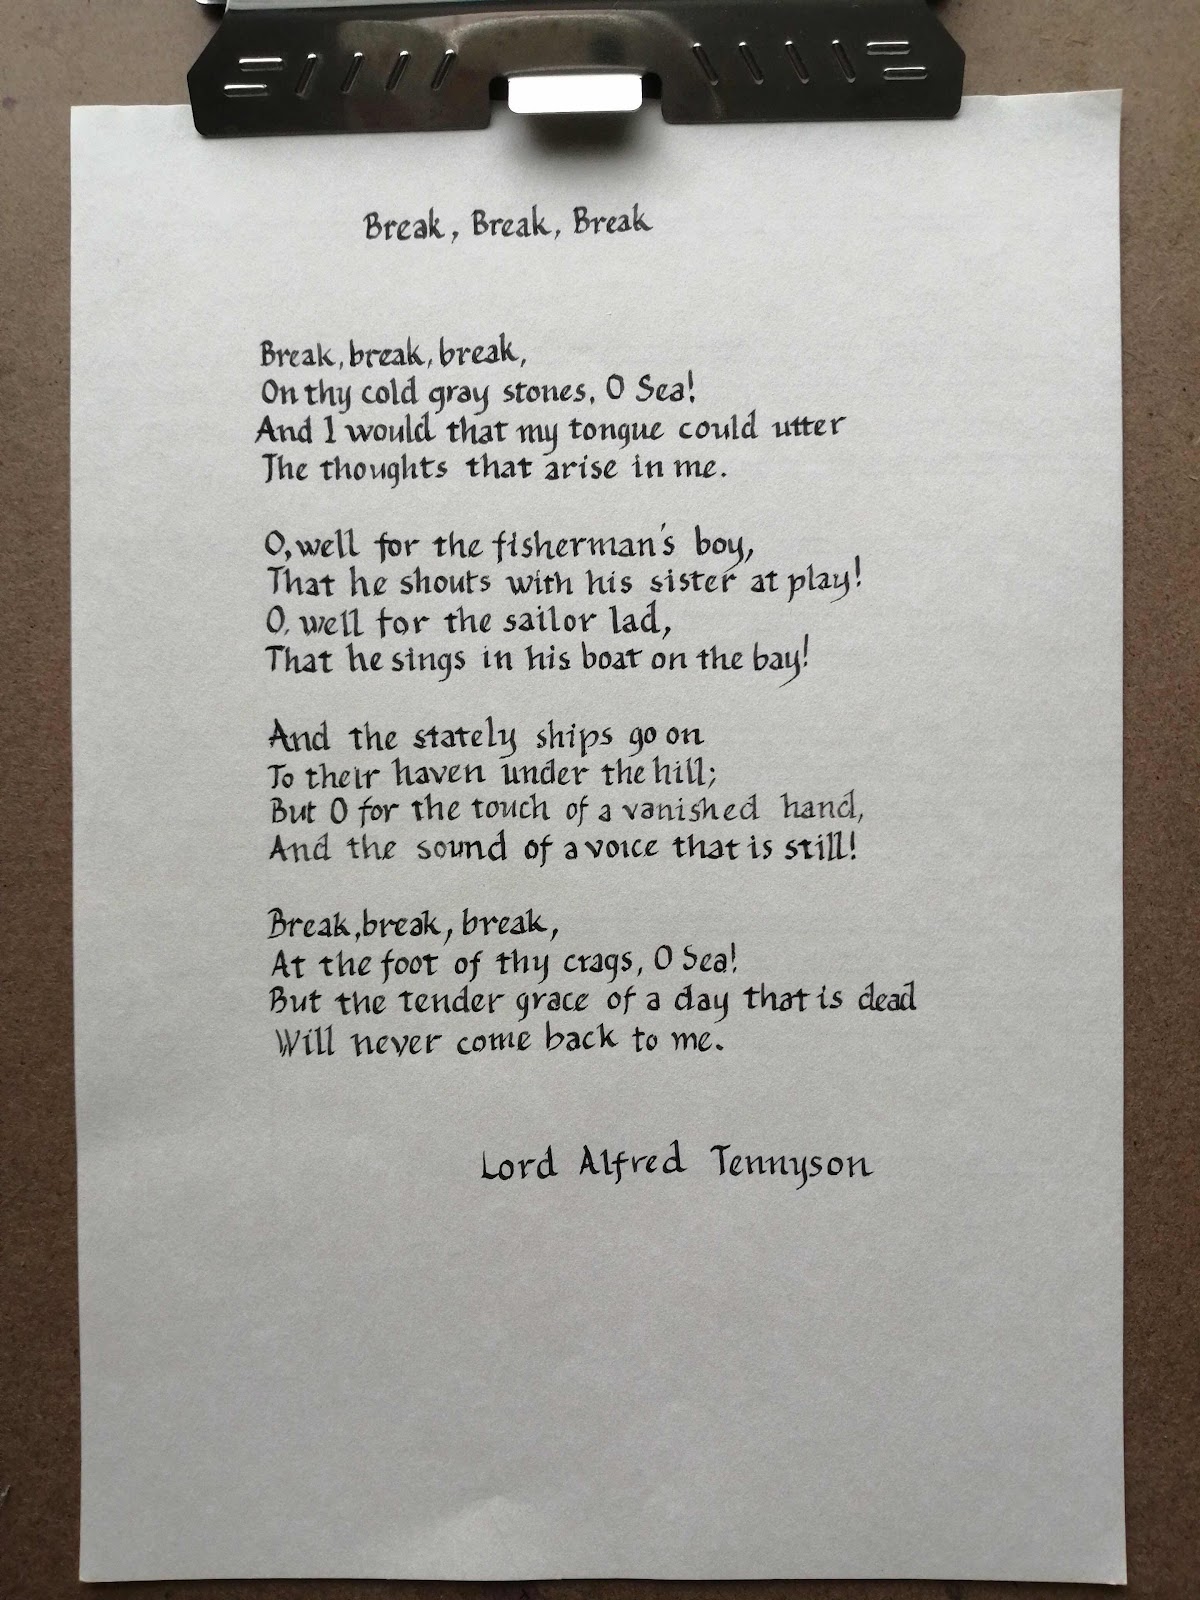 Break, Break, Break
Break, break, break,
On thy cold gray stones, O Sea!
And I would that my tongue could utter
The thoughts that arise in me.
O, well for the fisherman's boy,
That he shouts with his sister at play!
O, well for the sailor lad,
That he sings in his boat on the bay!
And the stately ships go on
To their haven under the hill;
But O for the touch of a vanished hand,
And the sound of a voice that is still!
Break, break, break,
At the foot of thy crags, O Sea!
But the tender grace of a day that is dead
Will never come back to me.
Lord Alfred Tennyson